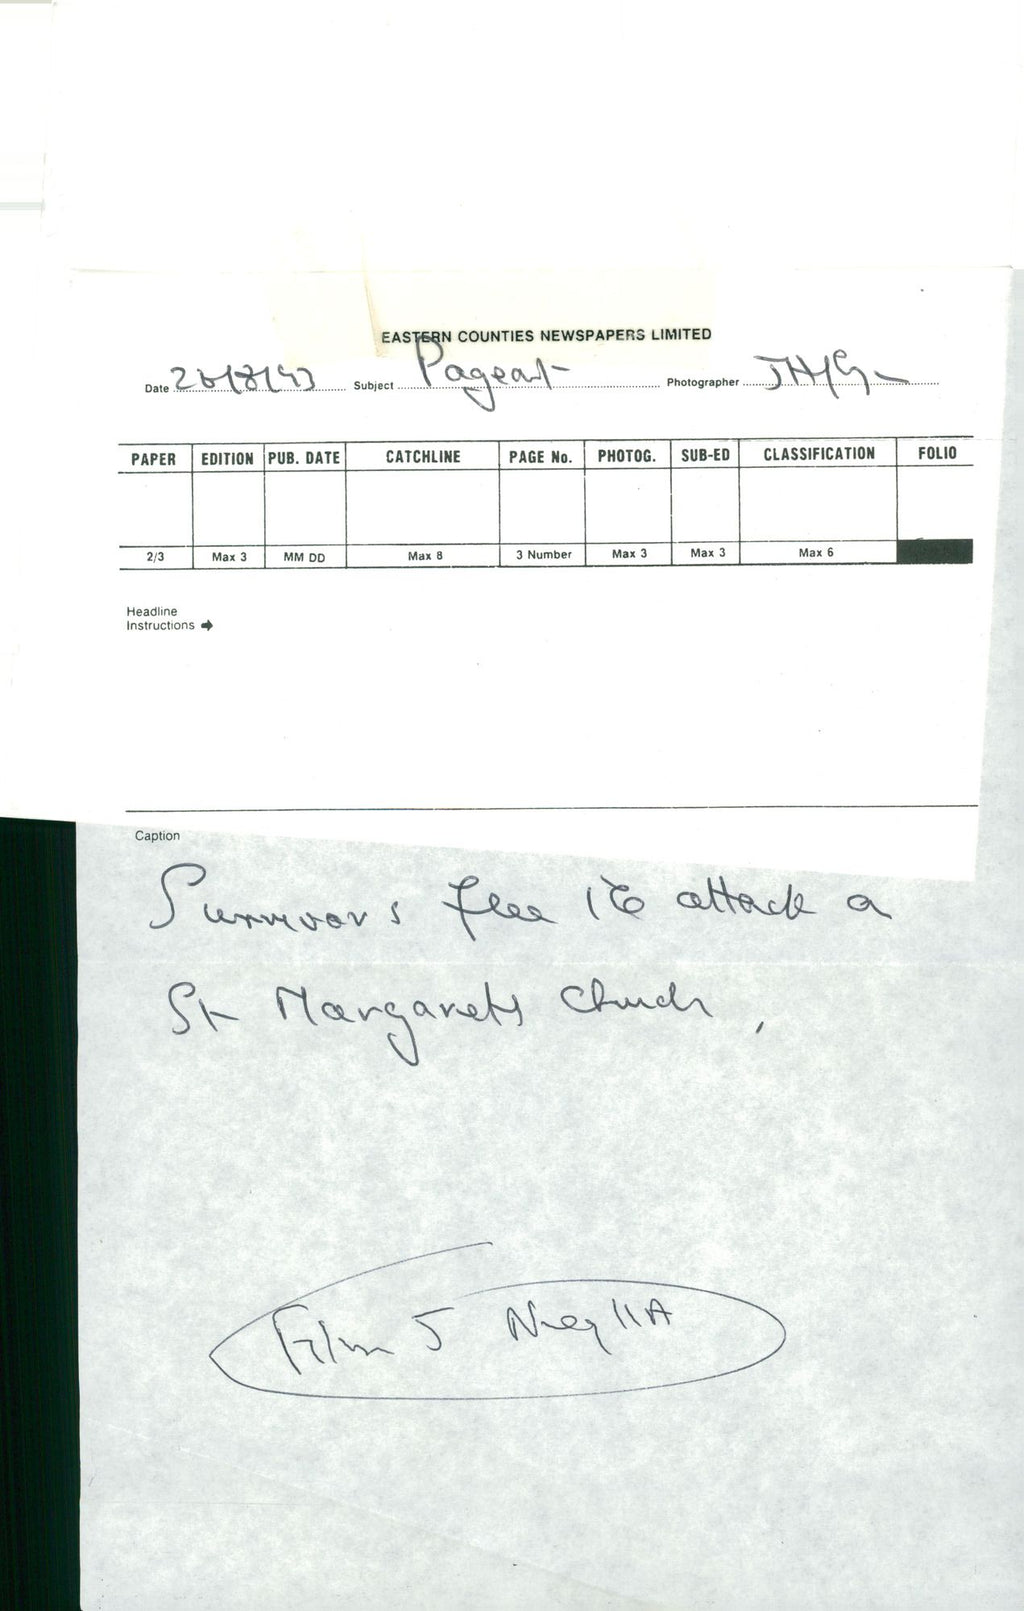 EASTERN COUNTIES NEWSPAPERS LIMITED
Date 26/8/93 Subject Pageant Photographer
PAPER EDITION PUB. DATE CATCHLINE PAGE No. PHOTOG. SUB-ED CLASSIFICATION FOLIO
2/3 Max 3 MM DD Max 8 3 Number Max 3 Max 3 Max 6
Headline
Instructions →
Caption
Survivors flee attack a
St Margarets Church,
Film 5 Neg 11A